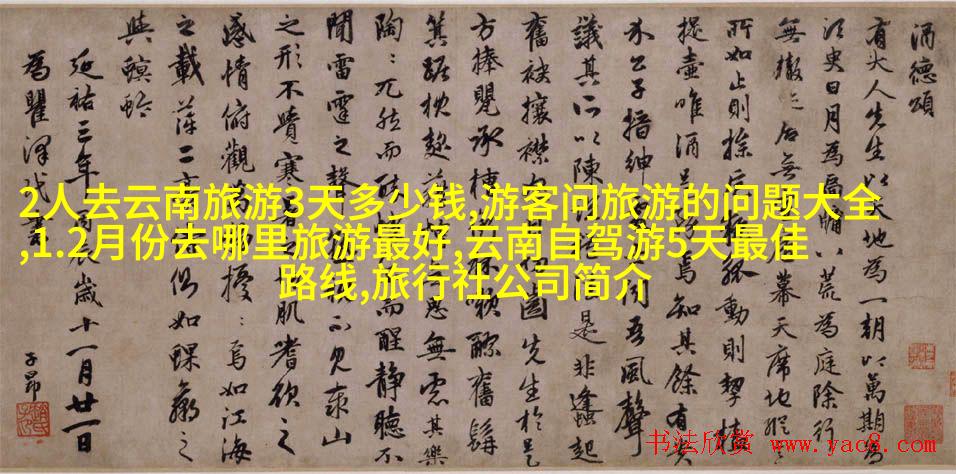 酒德頌
有大人先生以天地為一朝以萬期為
須臾日月為扃牖八荒為庭除行
無轍迹居無幕天席地縱
所如止則操動則挈榼
提壺唯酒是焉知其餘有貴
介公子搢紳吾風聲
議其所以陳是非蠭起
奮袂攘襟先生於是
方捧甖承槽漱醪奮髯
箕踞枕麴無慮其樂
陶：兀然而而醒靜聽不
聞雷霆之聲不見泰山
之形不覺寒肌嗜欲之
感情俯觀萬擾：焉如江海
之載浮二豪侶如蜾蠃之
與螟蛉
延祐三年歲十一月廿一日
為瞿澤民書
子昂
2人去云南旅游3天多少钱,游客问旅游的问题大全
,1.2月份去哪里旅游最好,云南自驾游5天最佳
路线,旅行社公司简介
书法欣赏 www.yac8.com